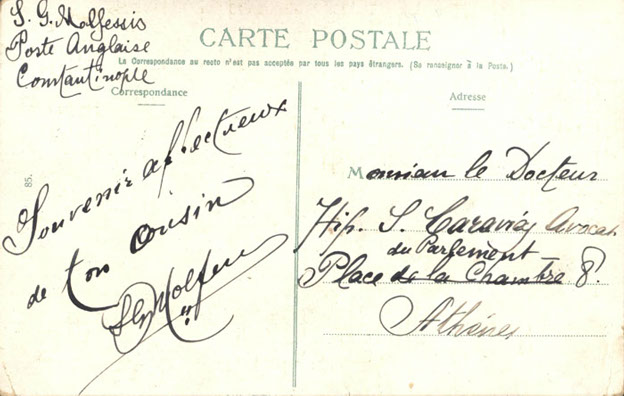 S. G. Molfessis
Poste Anglaise
Constantinople
CARTE POSTALE
La Correspondance au recto n'est pas acceptée par tous les pays étrangers. (Se renseigner à la Poste.)
Correspondance
Souvenir affectueux
de ton cousin
SGMolfess
85.
Adresse
Monsieur le Docteur
Hip. S. Caravia Avocat
du Parlement
Place de la Chambre 8.
Athènes